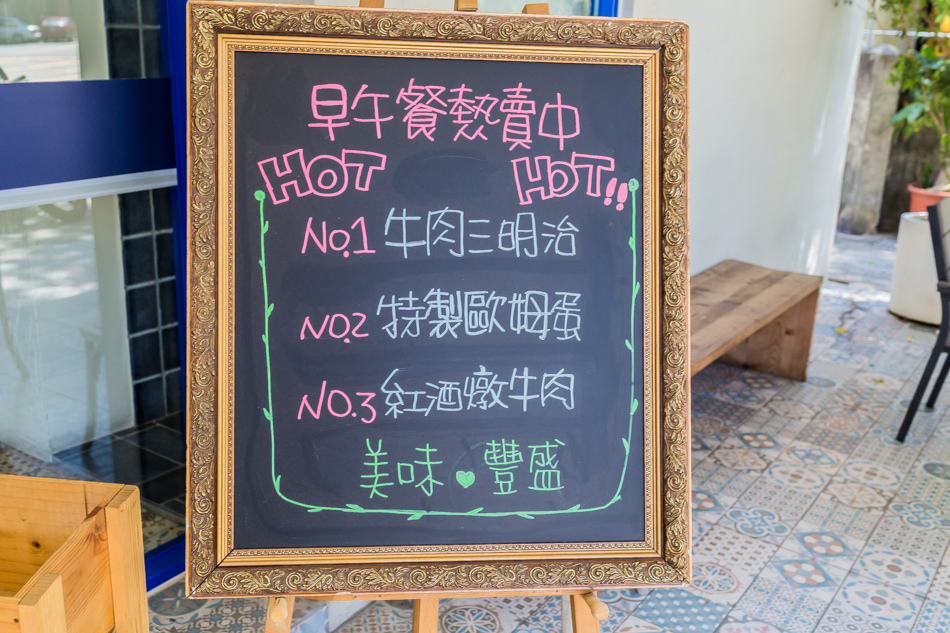 早午餐熱賣中
HOT HOT!!
NO.1 牛肉三明治
NO.2 特製歐姆蛋
NO.3 紅酒燉牛肉
美味 ♥ 豐盛